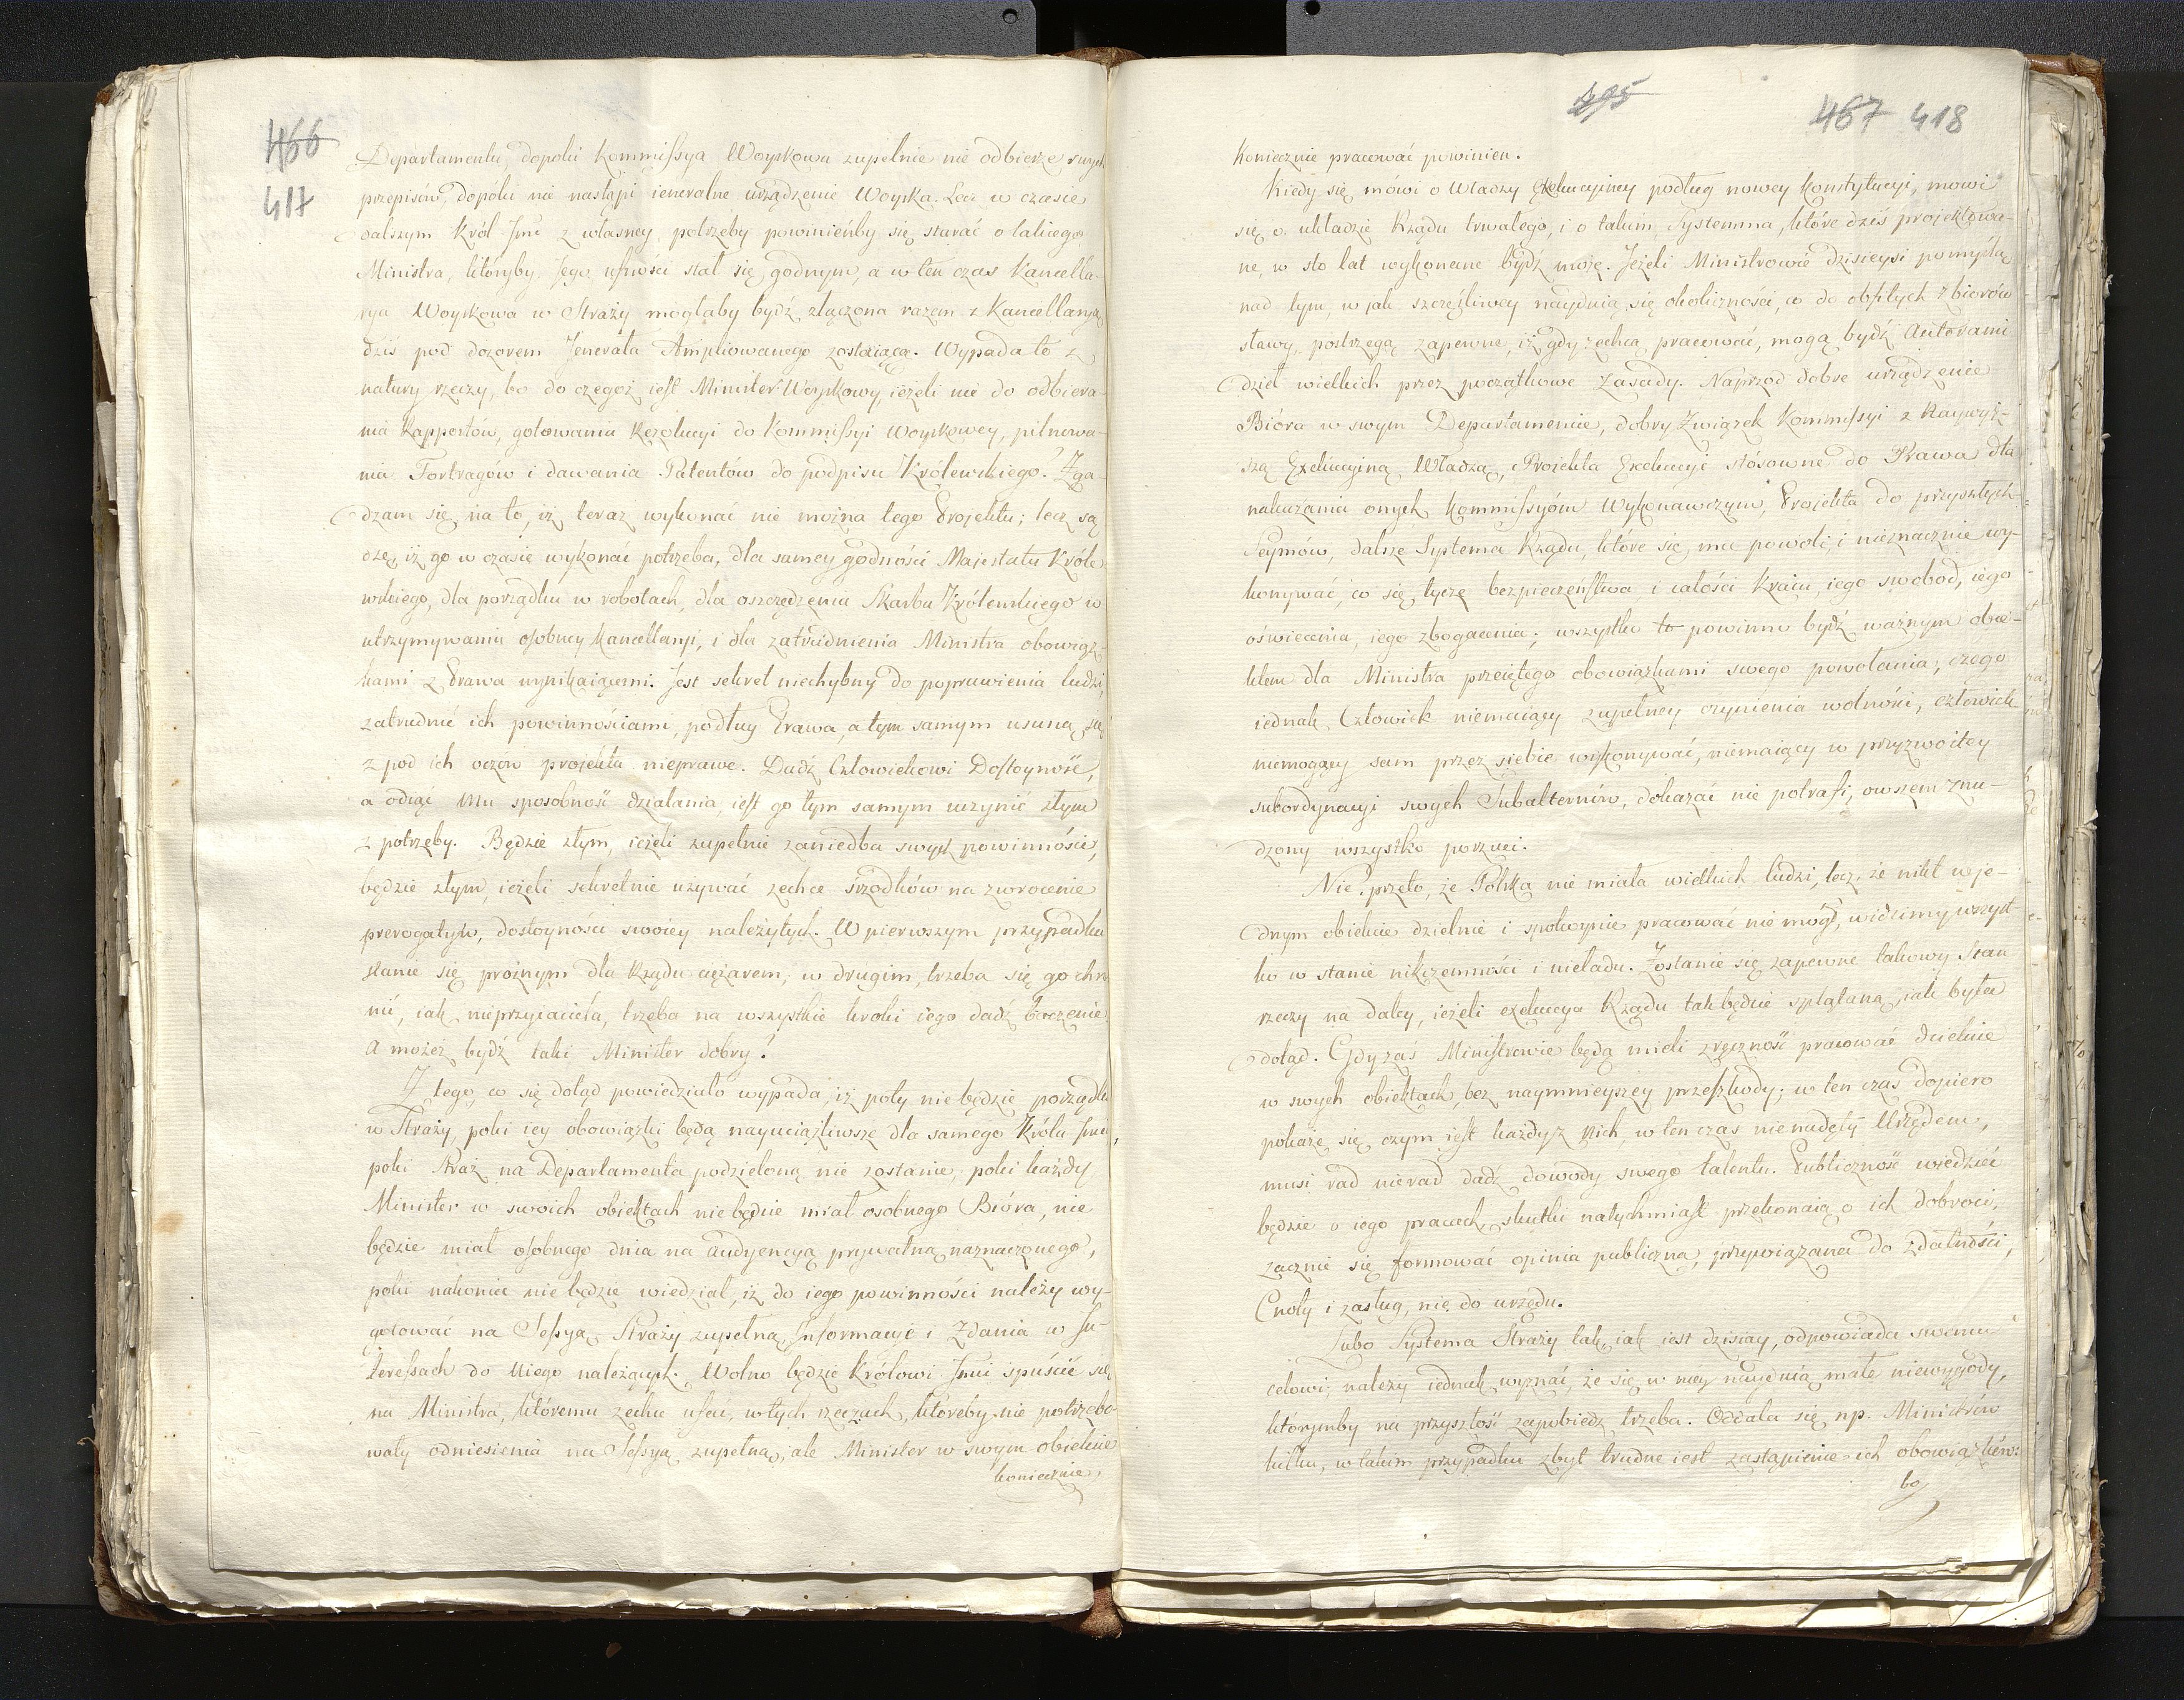 466
417
Departamentu, dopoki Kommissya Woyskowa zupełnie nie odbierze swych
przepisów, dopóki nie nastąpi ieneralne urządzenie Woyska. Lecz w czasie
dalszym Król Jmć z własney potrzeby powinienby się starać o takiego
Ministra, któryby Jego ufności stał się godnym, a w ten czas Kancella-
rya Woyskowa w Straży mogłaby bydź złączona razem z Kancellaryą
dziś pod dozorem Jenerała Ampliowanego zostaiącą. Wypada to z
natury rzeczy, bo do czegoż iest Minister Woyskowy, ieżeli nie do odbiera-
nia Rapportów, gotowania Rezolucyi do Kommissyi Woyskowey, pilnowa-
nia Fortragów i dawania Patentów do podpisu Królewskiego? Zga-
dzam się na to, iż teraz wykonać nie można tego Projektu; lecz są-
dzę, iż go w czasie wykonać potrzeba, dla samey godności Majestatu Króle-
wskiego, dla porządku w robotach, dla oszczędzenia Skarbu Królewskiego w
utrzymywaniu osobney Kancellaryi, i dla zatrudnienia Ministra obowiąz-
kami z Prawa wynikaiącemi. Jest sekret niechybny do poprawienia ludzi,
zatrudnić ich powinnościami, podług Prawa, a tym samym usuną się
z pod ich oczów projekta nieprawe. Dadź Człowiekowi Dostoyność,
a odiąć Mu sposobność działania, iest go tym samym uczynić złym
z potrzeby. Będzie złym, ieżeli zupełnie zaniedba swych powinności,
będzie złym, ieżeli sekretnie używać zechce śrzodków na zwrocenie
prerogatyw, dostoyności swoiey należytych. W pierwszym przypadku
stanie się prożnym dla Rządu ciężarem, w drugim, trzeba się go chro
nić, iak nieprzyiaciela, trzeba na wszystkie kroki iego dadź baczenie
A możeż bydź taki Minister dobry?
Z tego, co się dotąd powiedziało wypada, iż poty nie będzie porządku
w Straży, poki iey obowiązki będą nayuciążliwsze dla samego Króla Jmci,
poki Straż na Departamenta podzieloną nie zostanie, poki każdy
Minister w swoich obiektach nie będzie miał osobnego Bióra, nie
będzie miał osobnego dnia na audyencyą prywatną naznaczonego,
poki nakoniec nie będzie wiedział, iż do iego powinności należy wy-
gotować na Sessyą Straży zupełną Informacyę i Zdania w In-
teressach do Niego należących. Wolno będzie Królowi Jmci spuścić się
na Ministra, któremu zechce ufać, w tych rzeczach, któreby nie potrzebo-
wały odniesienia na Sessyą zupełną, ale Minister w swym obiekcie
koniecznie
495
467 418
Koniecznie pracować powinien.
Kiedy się mówi o Władzy Exekucyiney podług nowey Konstytucyi, mowi
się o układzie Rządu trwałego, i o takim Systemma, które dziś projektowa-
ne, w sto lat wykonane bydź może. Jeżeli Ministrowie dzisieysi pomyślą
nad tym, w jak szczęśliwey nayduią się okoliczności, co do obfitych zbiorów
sławy, postrzegą zapewne, iż gdy zechcą pracować, mogą bydź Autorami
dzieł wielkich przez początkowe zasady. Naprzod dobre urządzenie
Bióra w swym Departamencie, dobry Związek Kommissyi z Naywyż-
szą Exekucyiną Władzą, Projekta Exekucyi stósowne do Prawa dla
nakazania onych Kommissyóm Wykonawczym, Projekta do przyszłych
Seymów, dalsze Systema Rządu, które się ma powoli, i nieznacznie wy-
konywać, co się tycze bezpieczeństwa i całości Kraiu, iego swobod, iego
oświecenia, iego zbogacenia; wszystko to powinno bydź ważnym obie-
ktem dla Ministra przeiętego obowiązkami swego powołania, czego
iednak Człowiek niemaiący zupełney czynienia wolności, człowiek
niemogący sam przez siebie wykonywać, niemaiący w przyzwoitey
subordynacyi swych Subalternów, dokazać nie potrafi, owszem znu-
dzony wszystko porzuci.
Nie przeto, że Polska nie miała wielkich ludzi, lecz, że nikt w je-
dnym obiekcie dzielnie i spokoynie pracować nie mógł, widzimy wszyst-
ko w stanie nikczemności i nieładu. Zostanie się zapewne takowy Stan
rzeczy na daley, ieżeli exekucya Rządu tak będzie splątaną, iak była
dotąd. Gdy zaś Ministrowie będą mieli zręczność pracować dzielnie
w swych obiektach, bez naymnieyszey przeszkody; w ten czas dopiero
pokaże się, czym iest każdy z Nich, w ten czas nienadęty Urzędem,
musi rad nierad dadź dowody swego talentu. Publiczność wiedzieć
będzie o iego pracach, skutki natychmiast przekonaią o ich dobroci,
zacznie się formować opinia publiczna, przywiązana do zdatności,
Cnoty i zasług, nie do urzędu.
Lubo Systema Straży tak, iak iest dzisiay, odpowiada swemu
celowi, należy iednak wyznać, że się w niey nayduią małe niewygody,
którymby na przyszłość zapobiedz trzeba. Oddala się np. Ministrów
kilku, w takim przypadku zbyt trudne iest zastąpienie ich obowiązków:
bo